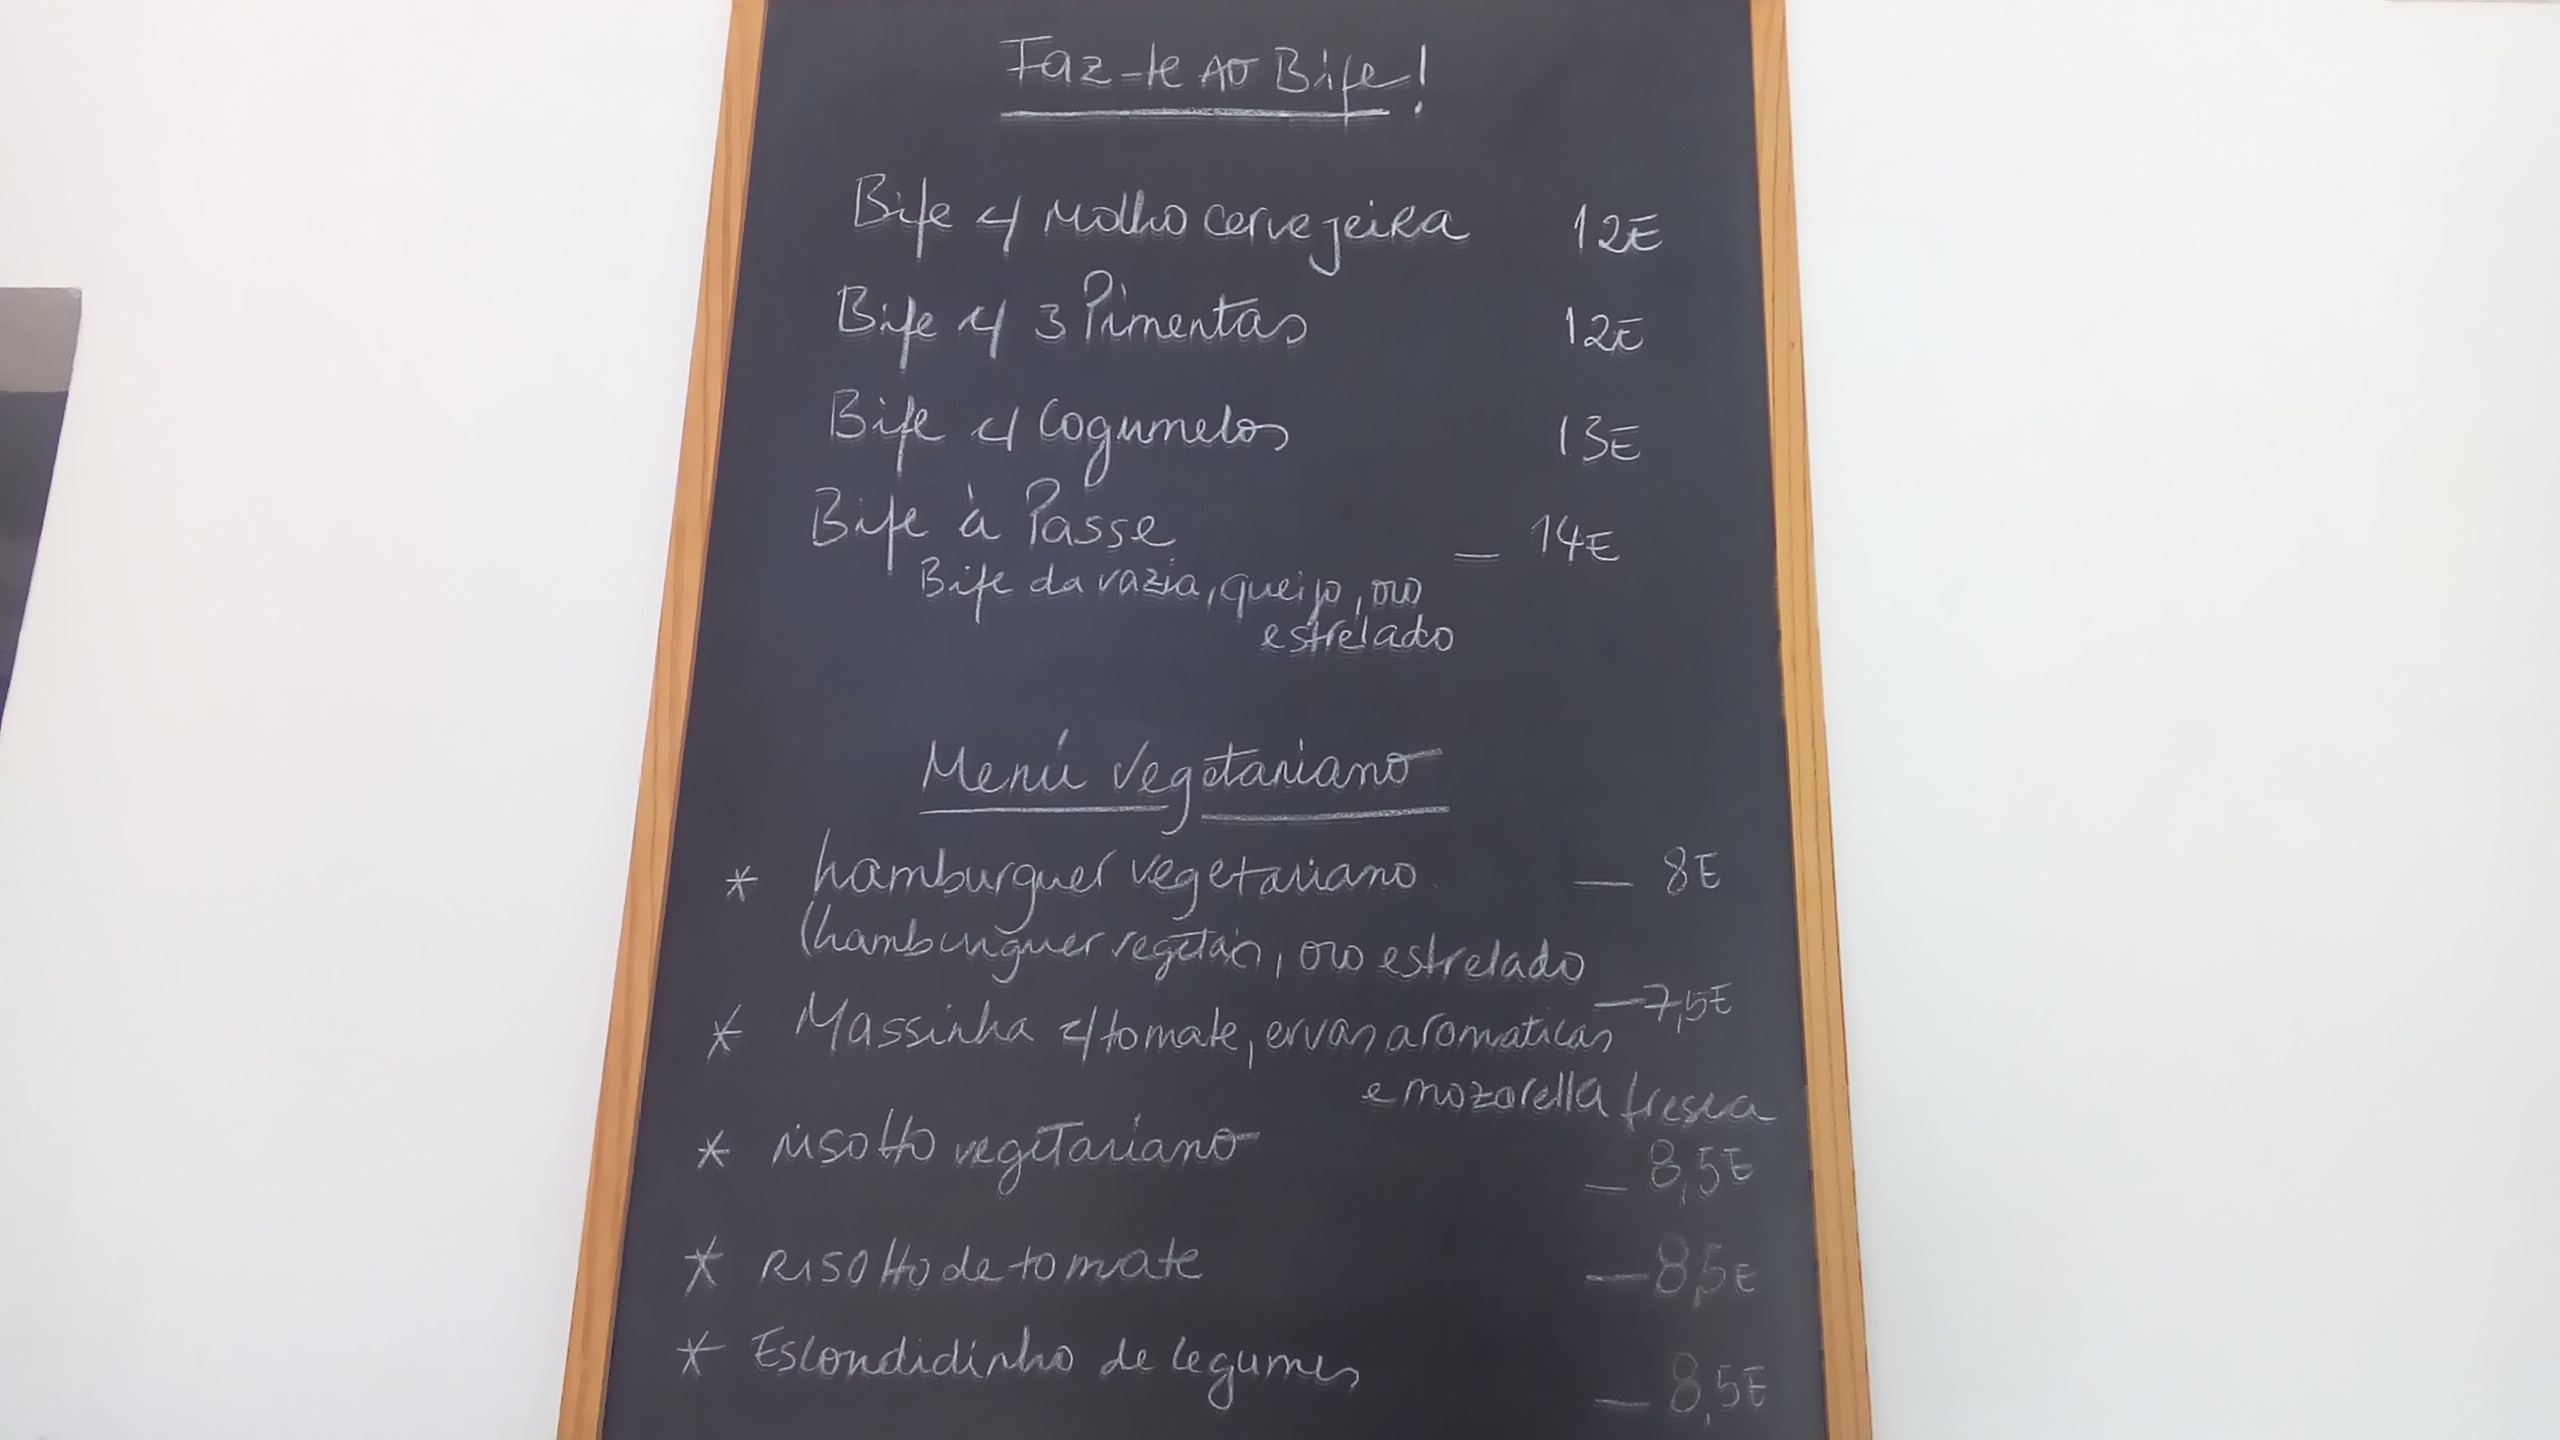 Faz-te ao Bife!
Bife c/ Molho cervejeira 12E
Bife c/ 3 Pimentas 12E
Bife c/ Cogumelos 13E
Bife à Passe — 14E
Bife da vazia, queijo, ovo
estrelado
Menú Vegetariano
* hamburguer vegetariano — 8E
(hamburguer vegetar, ovo estrelado
* Massinha c/ tomate, ervas aromaticas — 7,5E
e mozarella fresca
* risotto vegetariano — 8,5E
* Risotto de tomate — 8,5E
* Escondidinho de legumes — 8,5E